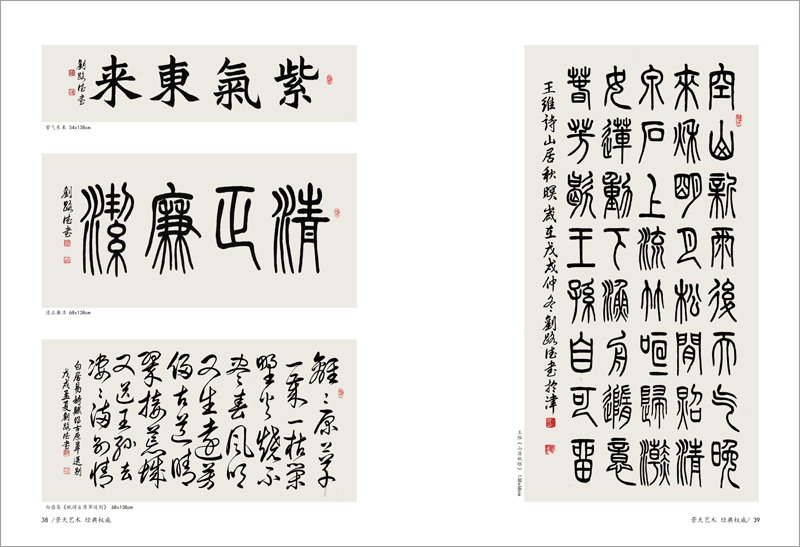 紫氣東来
劉路書
紫气东来 34x138cm
清正廉潔
劉路書
清正廉洁 68x138cm
離〻原上草
一歲一枯榮
野火燒不
盡春風吹
又生遠芳
侵古道晴
翠接荒城
又送王孫去
萋〻滿別情
白居易詩賦得古原草送別
戊戌孟夏劉路書
白居易《赋得古原草送别》 68x138cm
38 /景天艺术 经典权威
空山新雨後天气晚
來秋明月松間照清
泉石上流竹喧歸浣
女蓮動下漁舟隨意
春芳歇王孫自可留
王維詩山居秋暝歲在戊戌仲冬劉路書於津
王维《山居秋暝》 138x68cm
景天艺术 经典权威/ 39